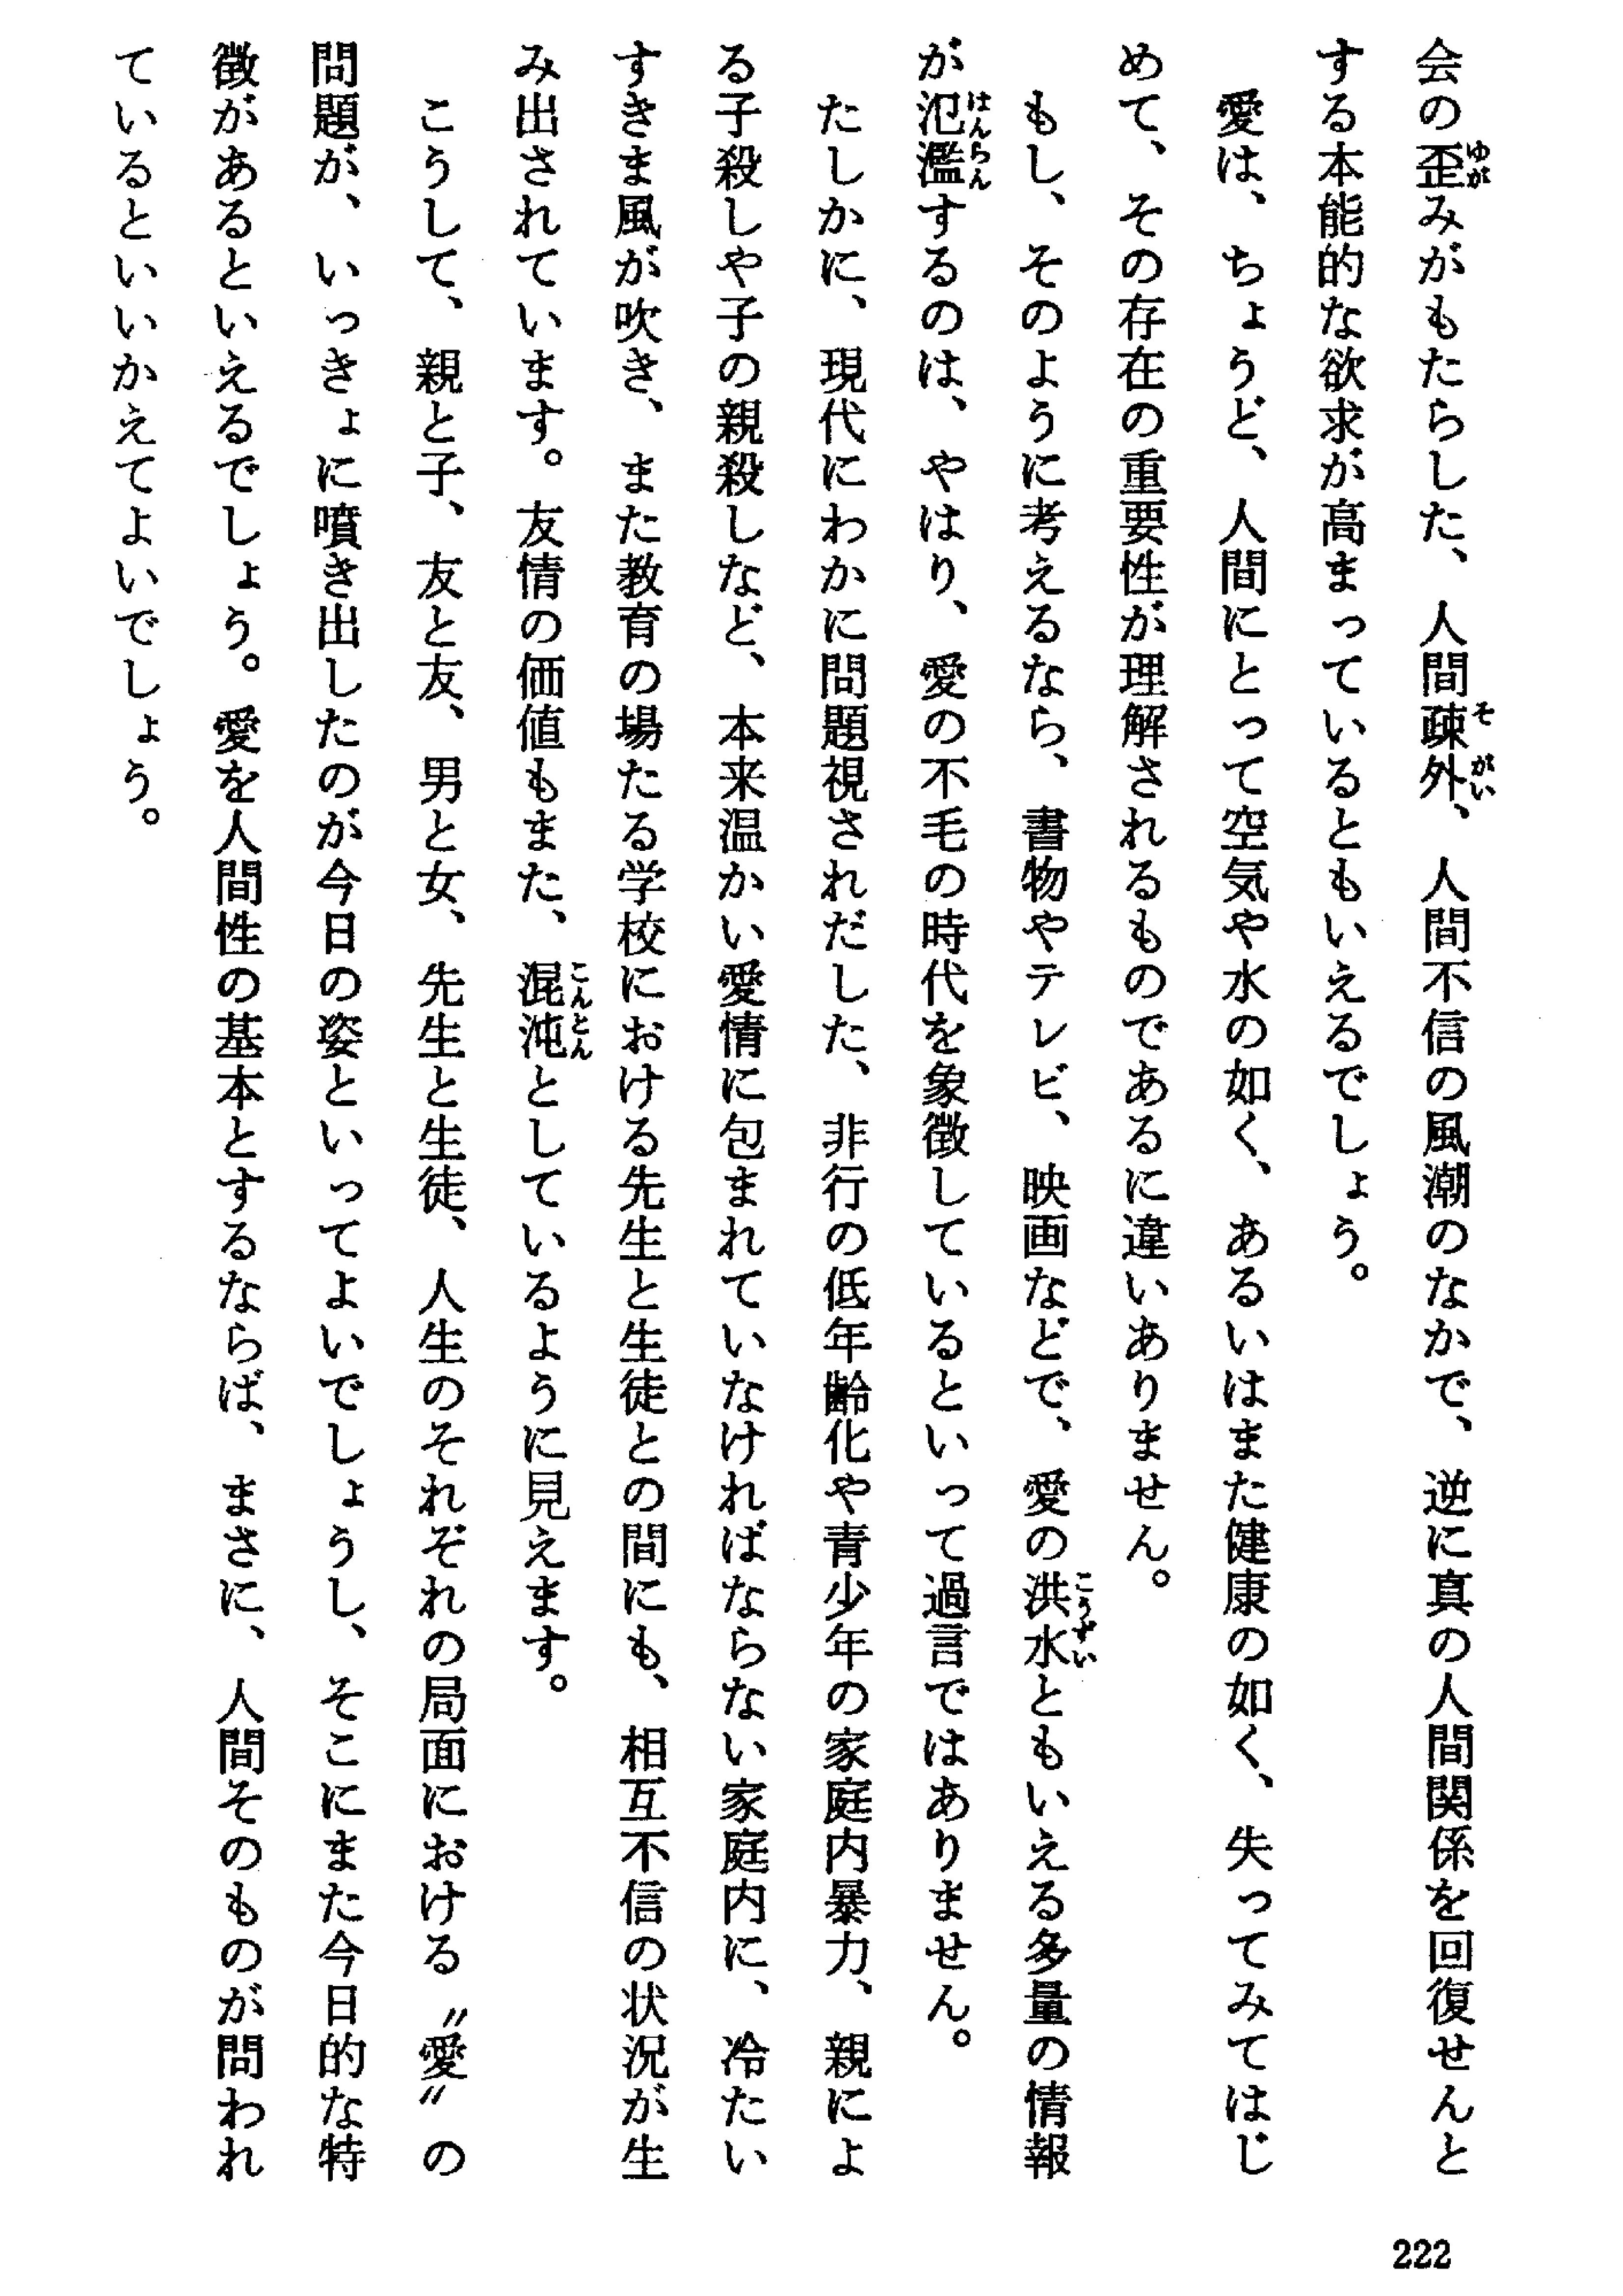 会の歪みがもたらした、人間疎外、人間不信の風潮のなかで、逆に真の人間関係を回復せんと
する本能的な欲求が高まっているともいえるでしょう。
愛は、ちょうど、人間にとって空気や水の如く、あるいはまた健康の如く、失ってみてはじ
めて、その存在の重要性が理解されるものであるに違いありません。
もし、そのように考えるなら、書物やテレビ、映画などで、愛の洪水ともいえる多量の情報
が氾濫するのは、やはり、愛の不毛の時代を象徴しているといって過言ではありません。
たしかに、現代にわかに問題視されだした、非行の低年齢化や青少年の家庭内暴力、親によ
る子殺しや子の親殺しなど、本来温かい愛情に包まれていなければならない家庭内に、冷たい
すきま風が吹き、また教育の場たる学校における先生と生徒との間にも、相互不信の状況が生
み出されています。友情の価値もまた、混沌としているように見えます。
こうして、親と子、友と友、男と女、先生と生徒、人生のそれぞれの局面における〝愛〟の
問題が、いっきょに噴き出したのが今日の姿といってよいでしょうし、そこにまた今日的な特
徴があるといえるでしょう。愛を人間性の基本とするならば、まさに、人間そのものが問われ
ているといいかえてよいでしょう。
222